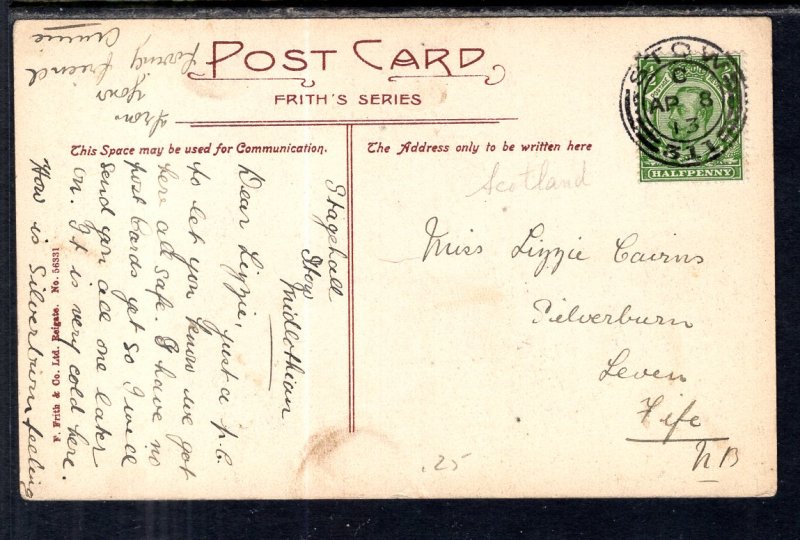 POST CARD
FRITH'S SERIES
This Space may be used for Communication.
The Address only to be written here
Stagehall
Stow
Midlothian
Dear Lizzie, just a p.c.
to let you know we got
here all safe. I have no
post cards yet so I will
send you all one later
on. It is very cold here.
How is Silverburn feeling
from
your
loving friend
Annie
F. Frith & Co. Ltd. Reigate. No. 56331
STOW
C
AP 8
13
HALFPENNY
Scotland
Miss Lizzie Cairns
Silverburn
Leven
Fife
NB
.25